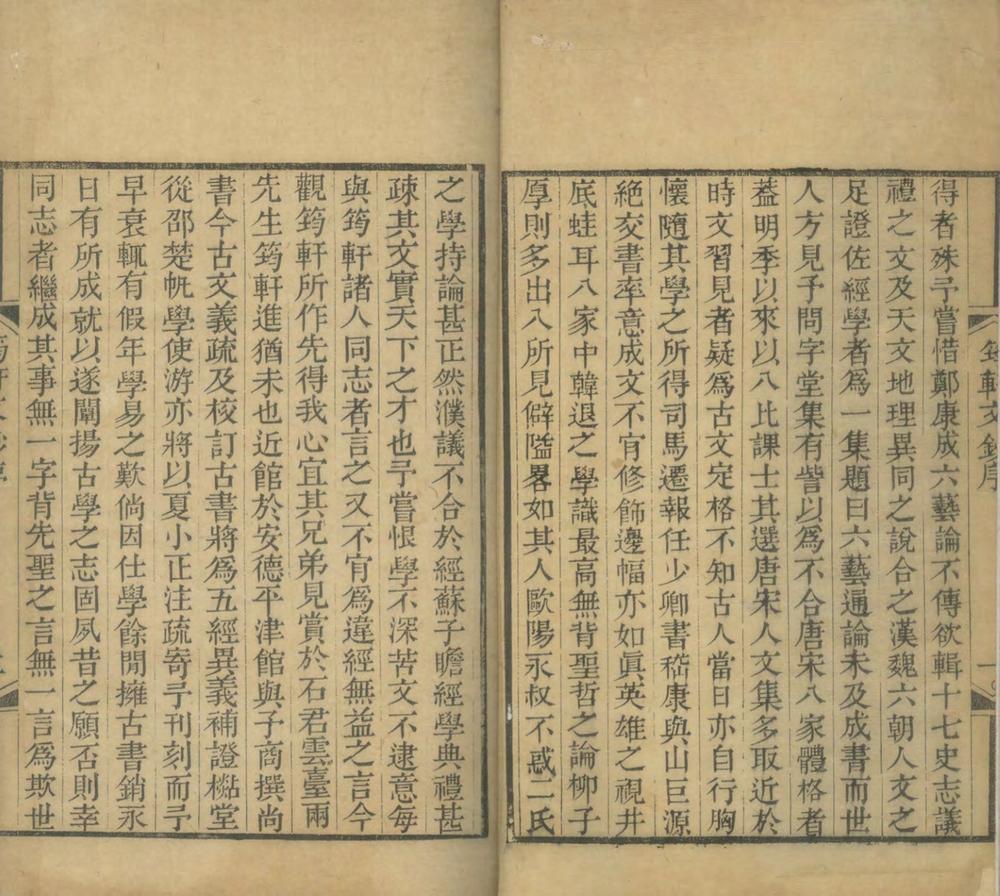 得者殊予嘗惜鄭康成六藝論不傳欲輯十七史志議
禮之文及天文地理異同之說合之漢魏六朝人文之
足證佐經學者為一集題曰六藝通論未及成書而世
人方見予問字堂集有訾以為不合唐宋八家體格者
葢明季以來以八比課士其選唐宋人文集多取近於
時文習見者疑為古文定格不知古人當日亦自行胸
懷隨其學之所得司馬遷報任少卿書嵇康與山巨源
絶交書率意成文不肎修飾邊幅亦如眞英雄之視井
底蛙耳八家中韓退之學識最高無背聖哲之論柳子
厚則多出入所見僻隘畧如其人歐陽永叔不惑二氏
之學持論甚正然濮議不合於經蘇子瞻經學典禮甚
疎其文實天下之才也予嘗恨學不深苦文不逮意每
與筠軒諸人同志者言之又不肎為違經無益之言今
觀筠軒所作先得我心宜其兄弟見賞於石君雲臺兩
先生筠軒進猶未也近館於安德平津館與予商撰尚
書今古文義疏及校訂古書將為五經異義補證檆堂
從邵楚帆學使游亦將以夏小正注疏寄予刊刻而予
早衰輒有假年學易之歎倘因仕學餘閒擁古書銷永
日有所成就以遂闡揚古學之志固夙昔之願否則幸
同志者繼成其事無一字背先聖之言無一言為欺世
筠軒文鈔序